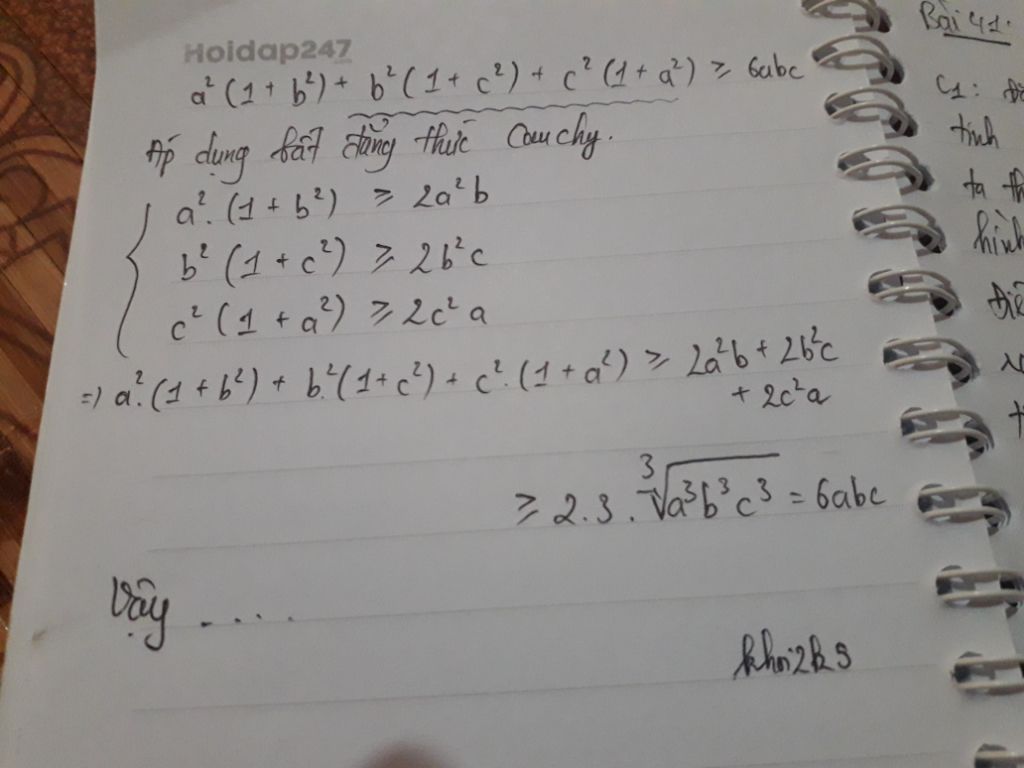 Hoidap247
a²(1 + b²) + b²(1 + c²) + c²(1 + a²) ≥ 6abc
Áp dụng bất đẳng thức Cauchy.
a².(1 + b²) ≥ 2a²b
b²(1 + c²) ≥ 2b²c
c²(1 + a²) ≥ 2c²a
=) a².(1 + b²) + b.²(1 + c²) + c².(1 + a²) ≥ 2a²b + 2b²c
+ 2c²a
≥ 2.3.∛a³b³c³ = 6abc
Vậy ....
Bài 41:
C1:
tính
ta
hình